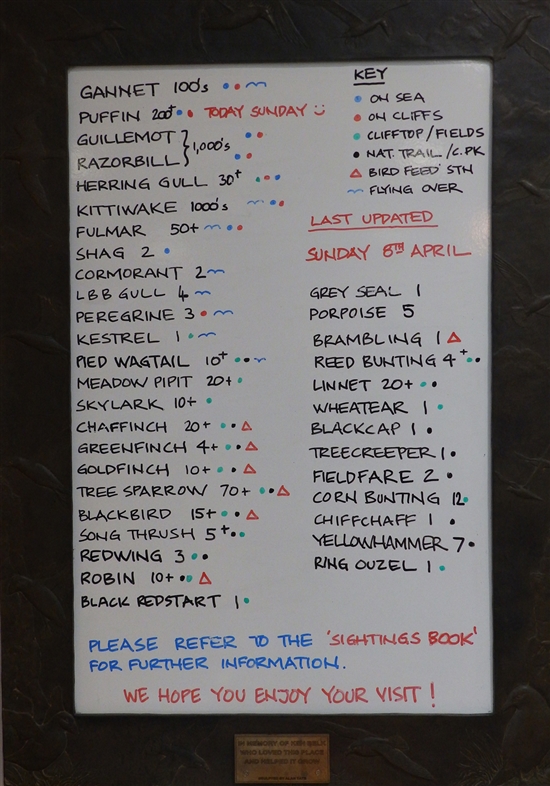 GANNET 100's
PUFFIN 200+ TODAY SUNDAY
GUILLEMOT
RAZORBILL } 1,000's
HERRING GULL 30+
KITTIWAKE 1000's
FULMAR 50+
SHAG 2
CORMORANT 2
LBB GULL 4
PEREGRINE 3
KESTREL 1
PIED WAGTAIL 10+
MEADOW PIPIT 20+
SKYLARK 10+
CHAFFINCH 20+
GREENFINCH 4+
GOLDFINCH 10+
TREE SPARROW 70+
BLACKBIRD 15+
SONG THRUSH 5+
REDWING 3
ROBIN 10+
BLACK REDSTART 1
KEY
ON SEA
ON CLIFFS
CLIFFTOP/FIELDS
NAT. TRAIL /C.PK
BIRD FEED' STN
FLYING OVER
LAST UPDATED
SUNDAY 8TH APRIL
GREY SEAL 1
PORPOISE 5
BRAMBLING 1
REED BUNTING 4+
LINNET 20+
WHEATEAR 1
BLACKCAP 1
TREECREEPER 1
FIELDFARE 2
CORN BUNTING 12
CHIFFCHAFF 1
YELLOWHAMMER 7
RING OUZEL 1
PLEASE REFER TO THE 'SIGHTINGS BOOK'
FOR FURTHER INFORMATION.
WE HOPE YOU ENJOY YOUR VISIT!
IN MEMORY OF KEN
WHO LOVED THIS PLACE
AND HELPED IT GROW